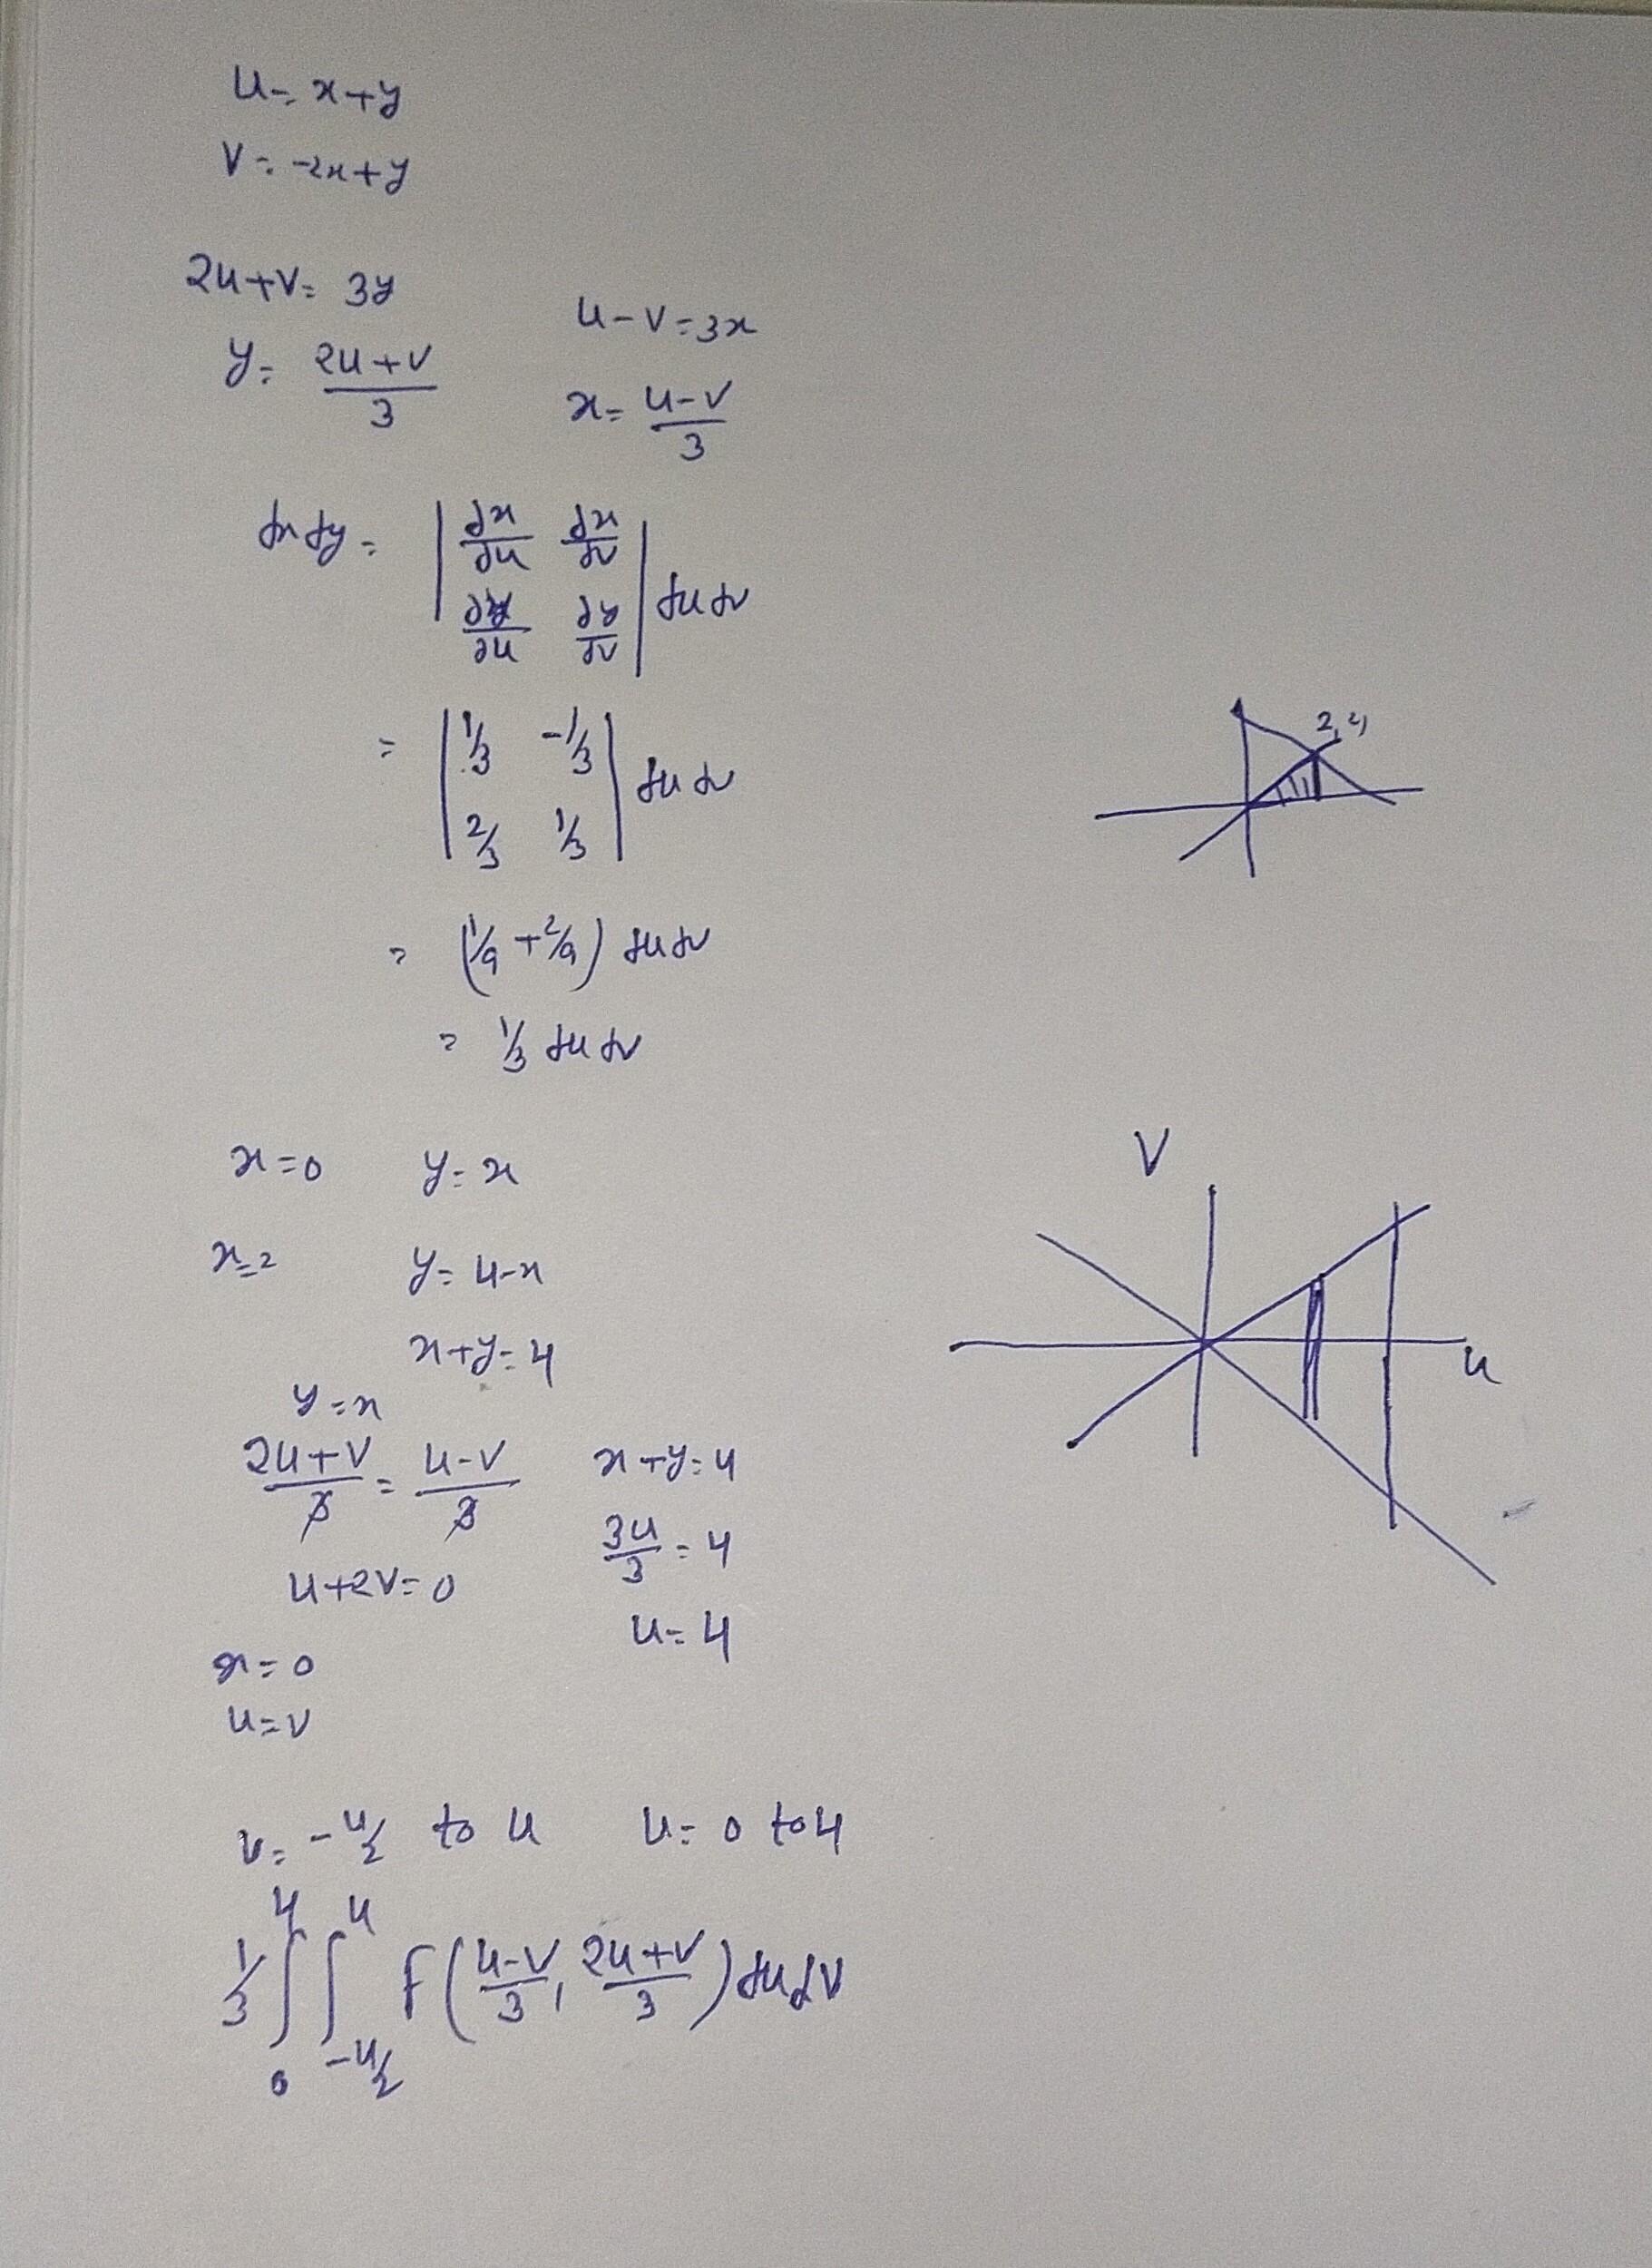 u = x+y
v = -2x+y
2u+v = 3y
u-v = 3x
y = (2u+v)/3
x = (u-v)/3
dx dy = | ∂x/∂u ∂x/∂v |
| ∂y/∂u ∂y/∂v | du dv
= | 1/3 -1/3 |
| 2/3 1/3 | du dv
2,2)
= (1/9 + 2/9) du dv
= 1/3 du dv
x=0 y=x
x=2 y=4-x
x+y=4
V
u
y=x
(2u+v)/3 = (u-v)/3
x+y=4
3u/3 = 4
u+2v=0
u=4
x=0
u=v
v = -u/2 to u u = 0 to 4
1/3 ∫₀⁴ ∫_{-u/2}^{u} f( (u-v)/3 , (2u+v)/3 ) du dv